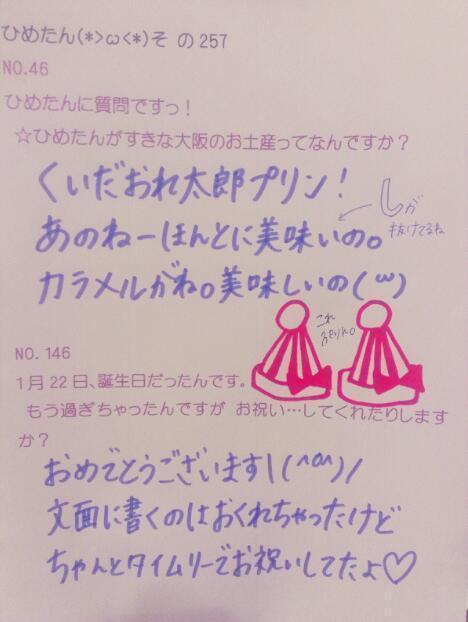 ひめたん(*>ω<*)そ の257
NO.46
ひめたんに質問ですっ!
☆ひめたんがすきな大阪のお土産ってなんですか?
くいだおれ太郎プリン!
あのねーほんとに美味いの。
しが
抜けてるね
カラメルがね。美味しいの(ω)
これ
NO.146
1月22日、誕生日だったんです。
もう過ぎちゃったんですが お祝い…してくれたりします
か?
おめでとうございます\(^o^)/
文面に書くのはおくれちゃったけど
ちゃんとタイムリーでお祝いしてたよ♡